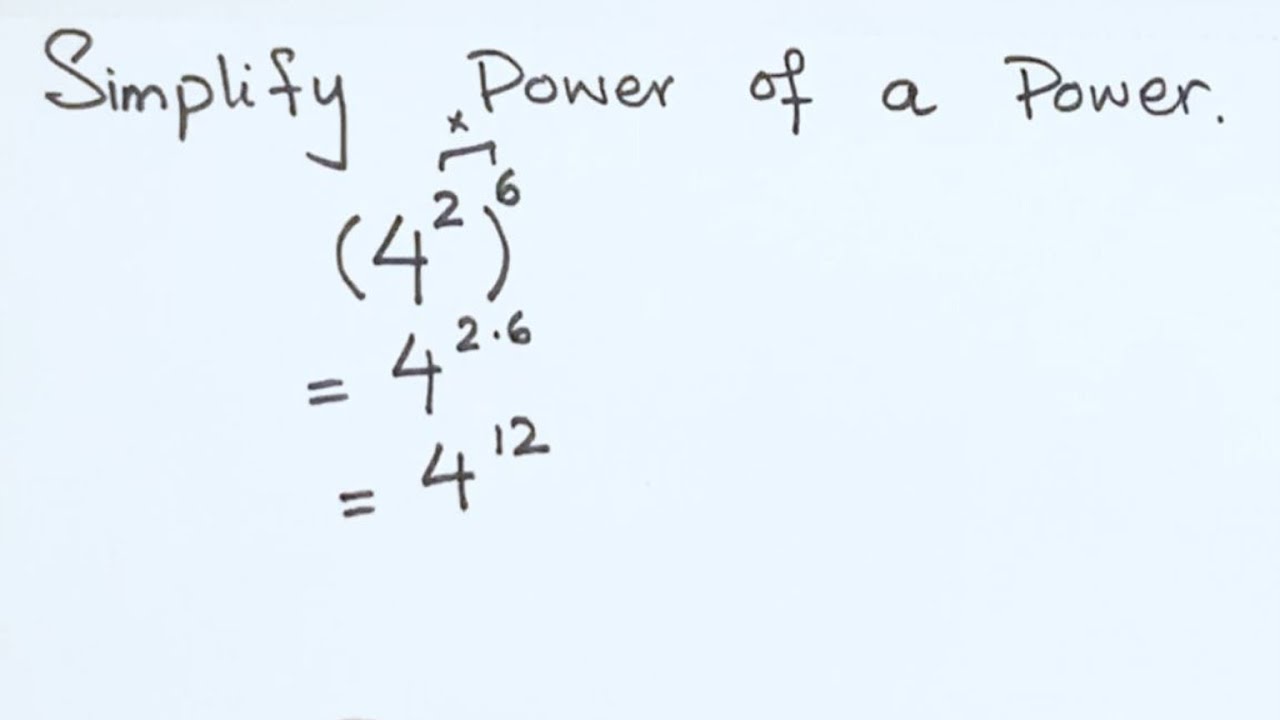 Simplify Power of a Power.
×
(4²)⁶
= 4²·⁶
= 4¹²